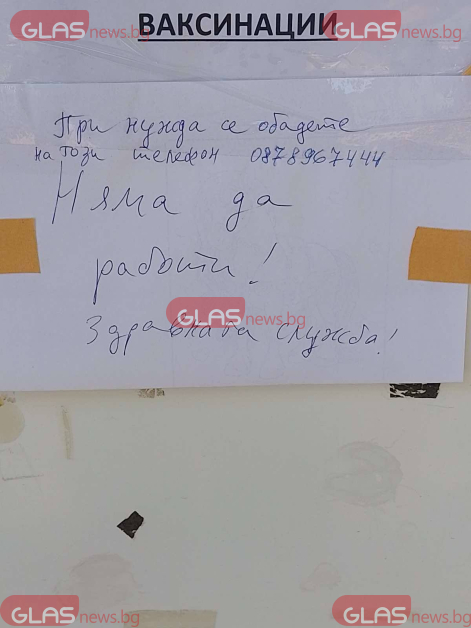 GLASnews.bg GLASnews.bg
ВАКСИНАЦИИ
При нужда се обадете
на този телефон 0878967444
Няма да
работи!
GLASnews.bg
Здравната служба!
GLASnews.bg GLASnews.bg